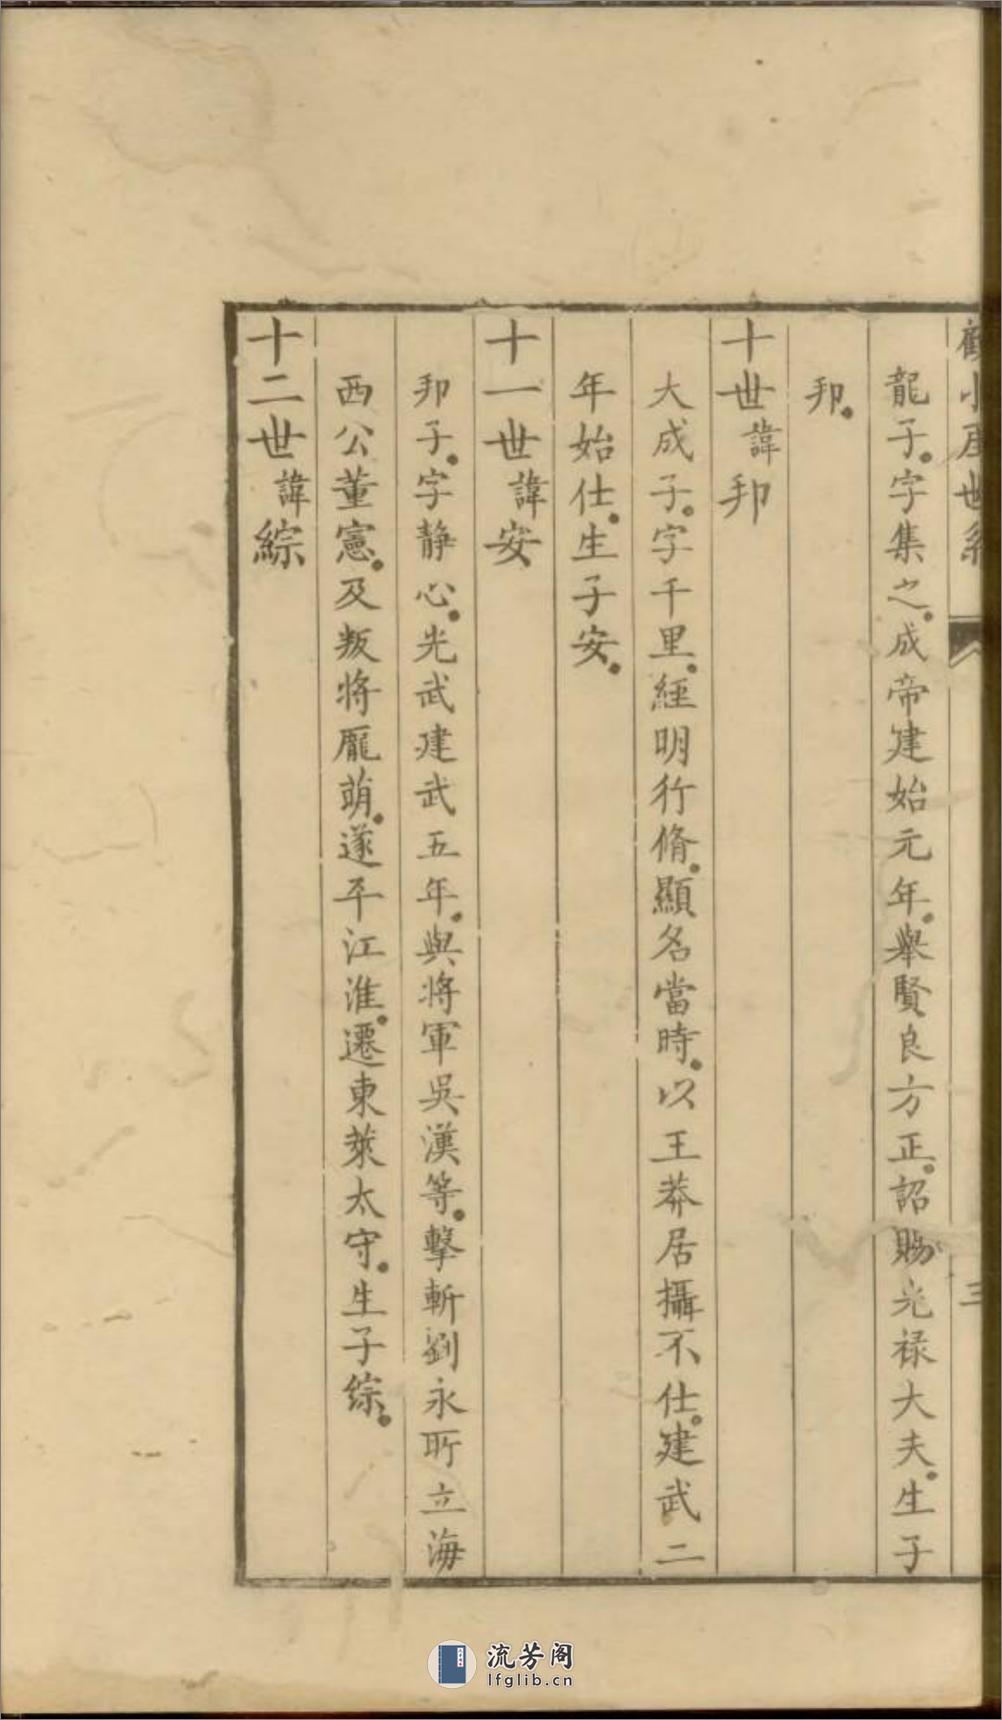 顧小産世系
三
龍子。字集之。成帝建始元年。舉賢良方正。詔賜光禄大夫。生子
邦。
十世諱邦
大成子。字千里。經明行脩。顯名當時。以王莽居攝不仕。建武二
年始仕。生子安。
十一世諱安
邦子。字静心。光武建武五年。與將軍吳漢等。擊斬劉永所立海
西公董憲。及叛將龐萌。遂平江淮。遷東萊太守。生子綜。
十二世諱綜
流芳阁
lfglib.cn